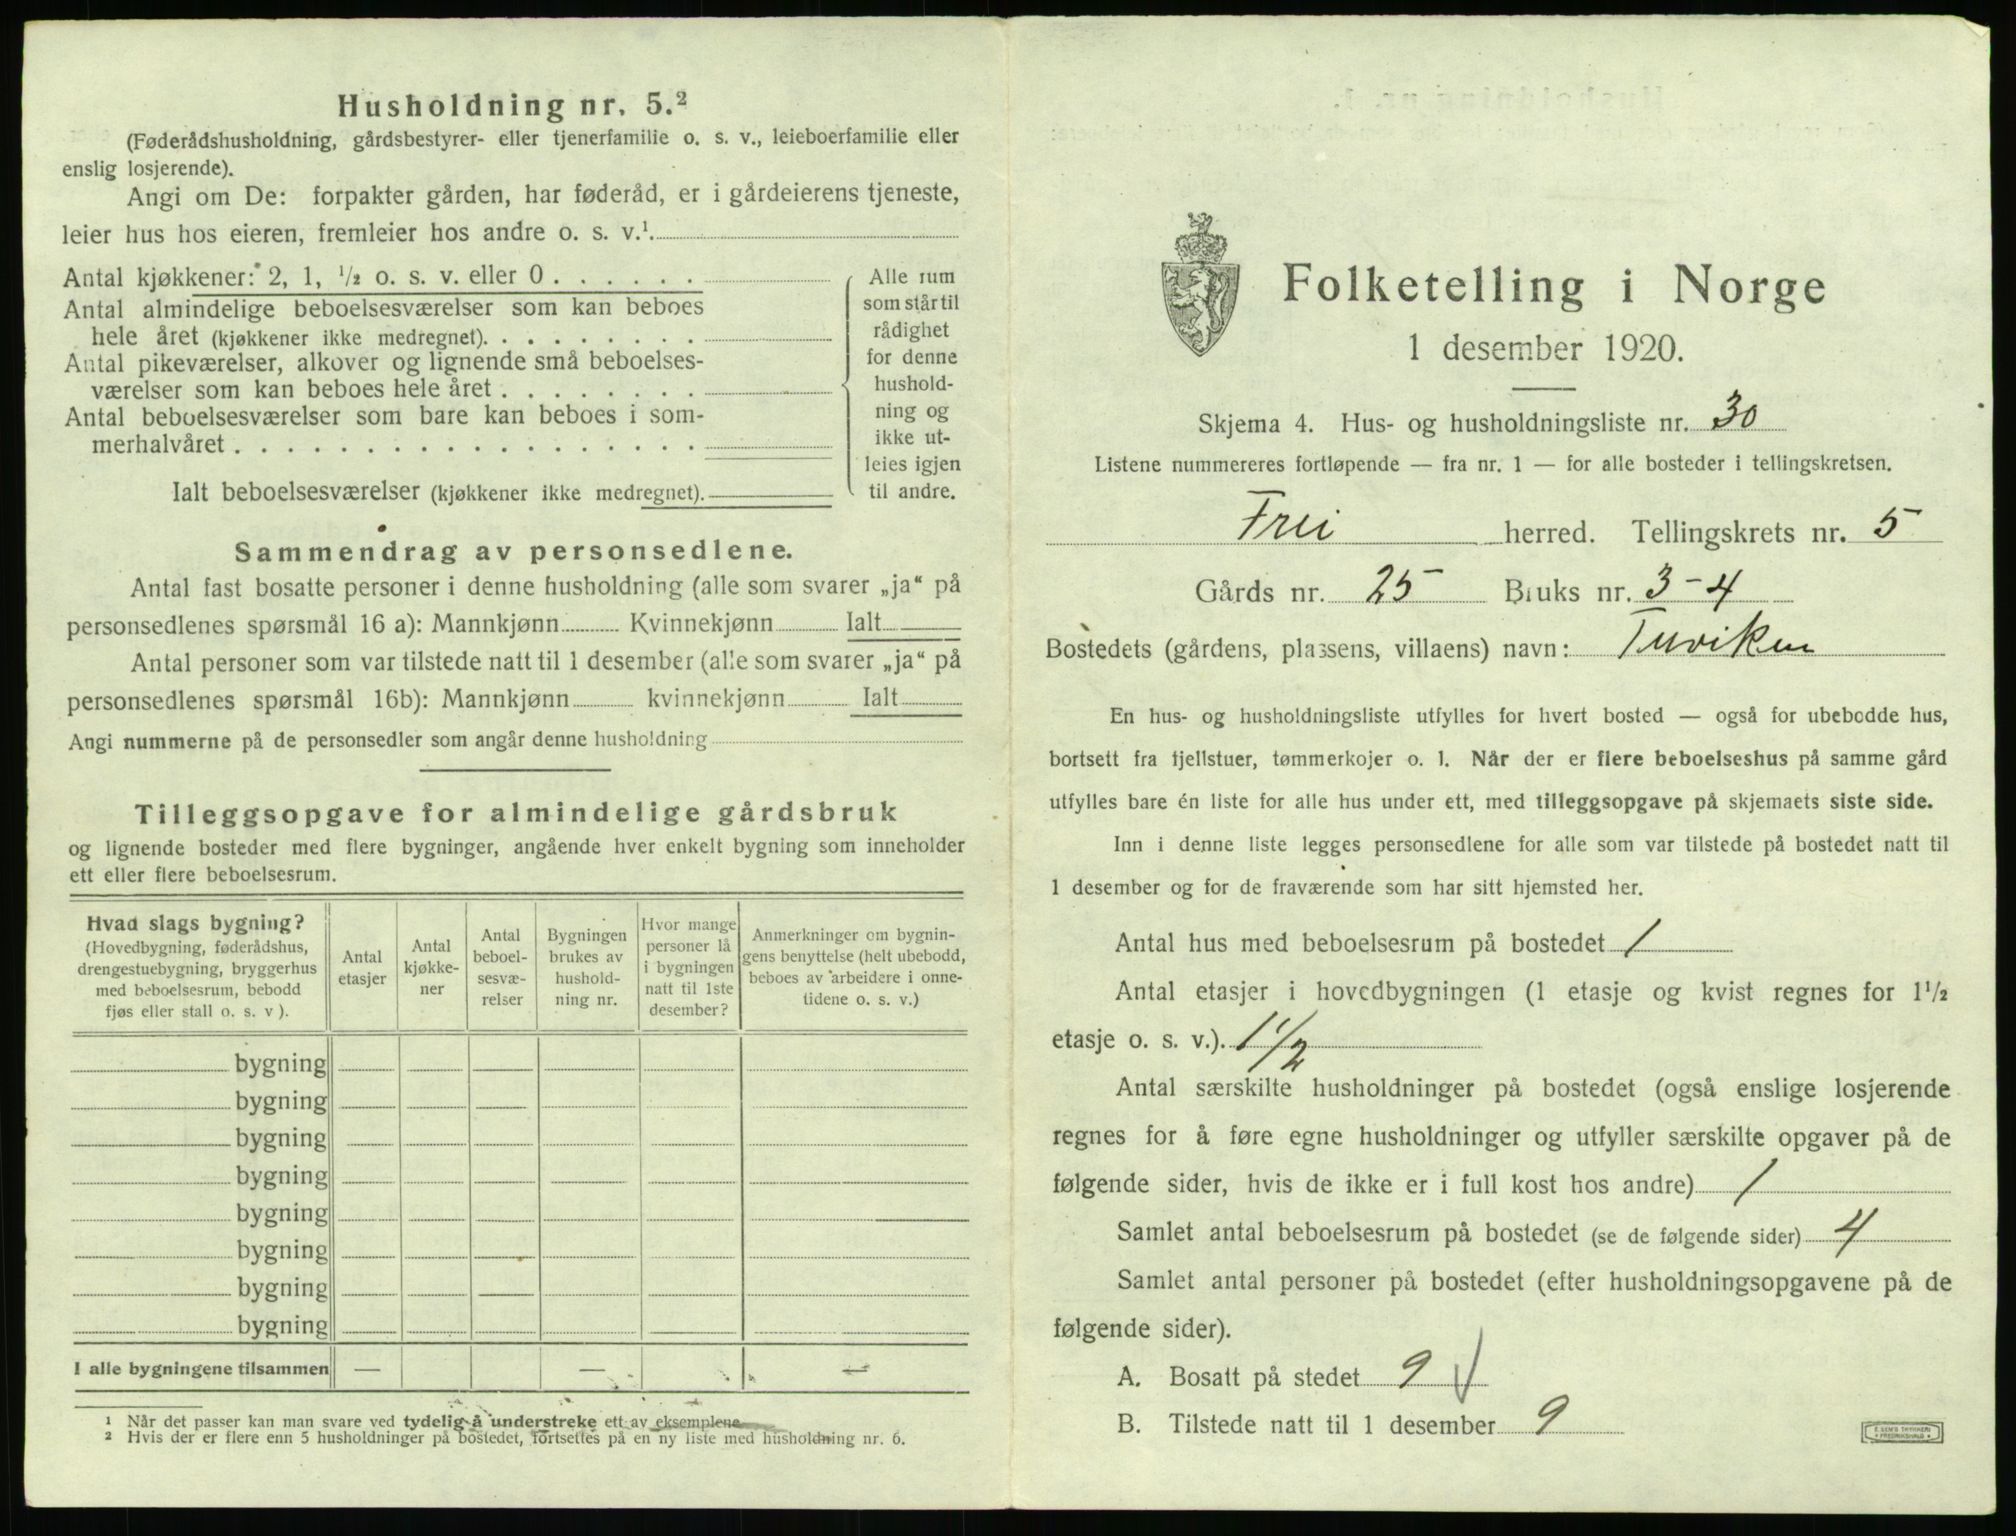 Husholdning nr. 5.²
(Føderådshusholdning, gårdsbestyrer- eller tjenerfamilie o. s. v., leieboerfamilie eller
enslig losjerende).
Angi om De: forpakter gården, har føderåd, er i gårdeierens tjeneste,
leier hus hos eieren, fremleier hos andre o. s. v.¹.
Antal kjøkkener: 2, 1, ½ o. s. v. eller 0 . . . . . .
Antal almindelige beboelsesværelser som kan beboes
hele året (kjøkkener ikke medregnet). . . . . . . . .
Antal pikeværelser, alkover og lignende små beboelses-
værelser som kan beboes hele året . . . . . . . .
Antal beboelsesværelser som bare kan beboes i som-
merhalvåret . . . . . . . . . . . . . . . . . .
Ialt beboelsesværelser (kjøkkener ikke medregnet).
Alle rum
som står til
rådighet
for denne
hushold-
ning og
ikke ut-
leies igjen
til andre.
Sammendrag av personsedlene.
Antal fast bosatte personer i denne husholdning (alle som svarer „ja“ på
personsedlenes spørsmål 16 a): Mannkjønn Kvinnekjønn Ialt
Antal personer som var tilstede natt til 1 desember (alle som svarer „ja“ på
personsedlenes spørsmål 16b): Mannkjønn kvinnekjønn Ialt
Angi nummerne på de personsedler som angår denne husholdning
Tilleggsopgave for almindelige gårdsbruk
og lignende bosteder med flere bygninger, angående hver enkelt bygning som inneholder
ett eller flere beboelsesrum.
Hvad slags bygning?
(Hovedbygning, føderådshus,
drengestuebygning, bryggerhus
med beboelsesrum, bebodd
fjøs eller stall o. s. v ).
Antal
etasjer
Antal
kjøkke-
ner
Antal
beboel-
sesvæ-
relser
Bygningen
brukes av
hushold-
ning nr.
Hvor mange
personer lå
i bygningen
natt til 1ste
desember?
Anmerkninger om bygnin-
gens benyttelse (helt ubebodd,
beboes av arbeidere i onne-
tidene o. s. v.)
bygning
bygning
bygning
bygning
bygning
bygning
bygning
bygning
I alle bygningene tilsammen — — —
¹ Når det passer kan man svare ved tydelig å understreke ett av eksemplene.
² Hvis der er flere enn 5 husholdninger på bostedet, fortsettes på en ny liste med husholdning nr. 6.
Folketelling i Norge
1 desember 1920.
Skjema 4. Hus- og husholdningsliste nr. 30
Listene nummereres fortløpende — fra nr. 1 — for alle bosteder i tellingskretsen.
Frei herred. Tellingskrets nr. 5
Gårds nr. 25 Bruks nr. 3-4
Bostedets (gårdens, plassens, villaens) navn:
En hus- og husholdningsliste utfylles for hvert bosted — også for ubebodde hus,
bortsett fra fjellstuer, tømmerkojer o. l. Når der er flere beboelseshus på samme gård
utfylles bare én liste for alle hus under ett, med tilleggsopgave på skjemaets siste side.
Inn i denne liste legges personsedlene for alle som var tilstede på bostedet natt til
1 desember og for de fraværende som har sitt hjemsted her.
Antal hus med beboelsesrum på bostedet 1
Antal etasjer i hovedbygningen (1 etasje og kvist regnes for 1½
etasje o. s. v.). 1½
Antal særskilte husholdninger på bostedet (også enslige losjerende
regnes for å føre egne husholdninger og utfyller særskilte opgaver på de
følgende sider, hvis de ikke er i full kost hos andre) 1
Samlet antal beboelsesrum på bostedet (se de følgende sider) 4
Samlet antal personer på bostedet (efter husholdningsopgavene på de
følgende sider).
A. Bosatt på stedet 9
B. Tilstede natt til 1 desember 9